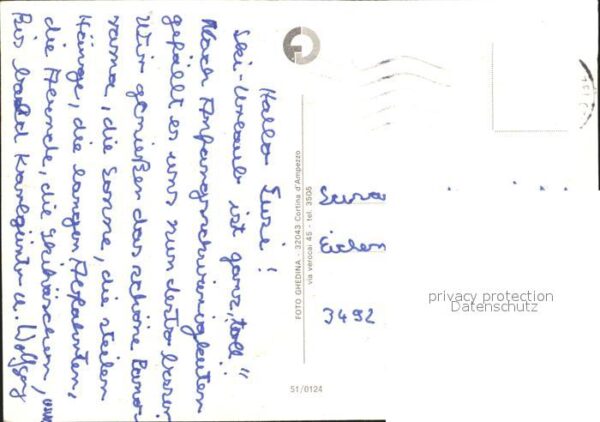 Hallo Susi!
Ski-Urlaub ist ganz "toll"
Nach Anfangsschwierigkeiten
gefällt es uns wunderbar
Wir genießen das schöne Pano-
rama, die Sonne, die steilen
Hänge, die langen Abfahrten,
die Abende, die Skihäschen, usw.
Bis bald Karlgünter u. Wolfgang
FOTO GHEDINA - 32043 Cortina d'Ampezzo
via verocai 45 - tel. 3505
51/0124
3492
privacy protection
Datenschutz